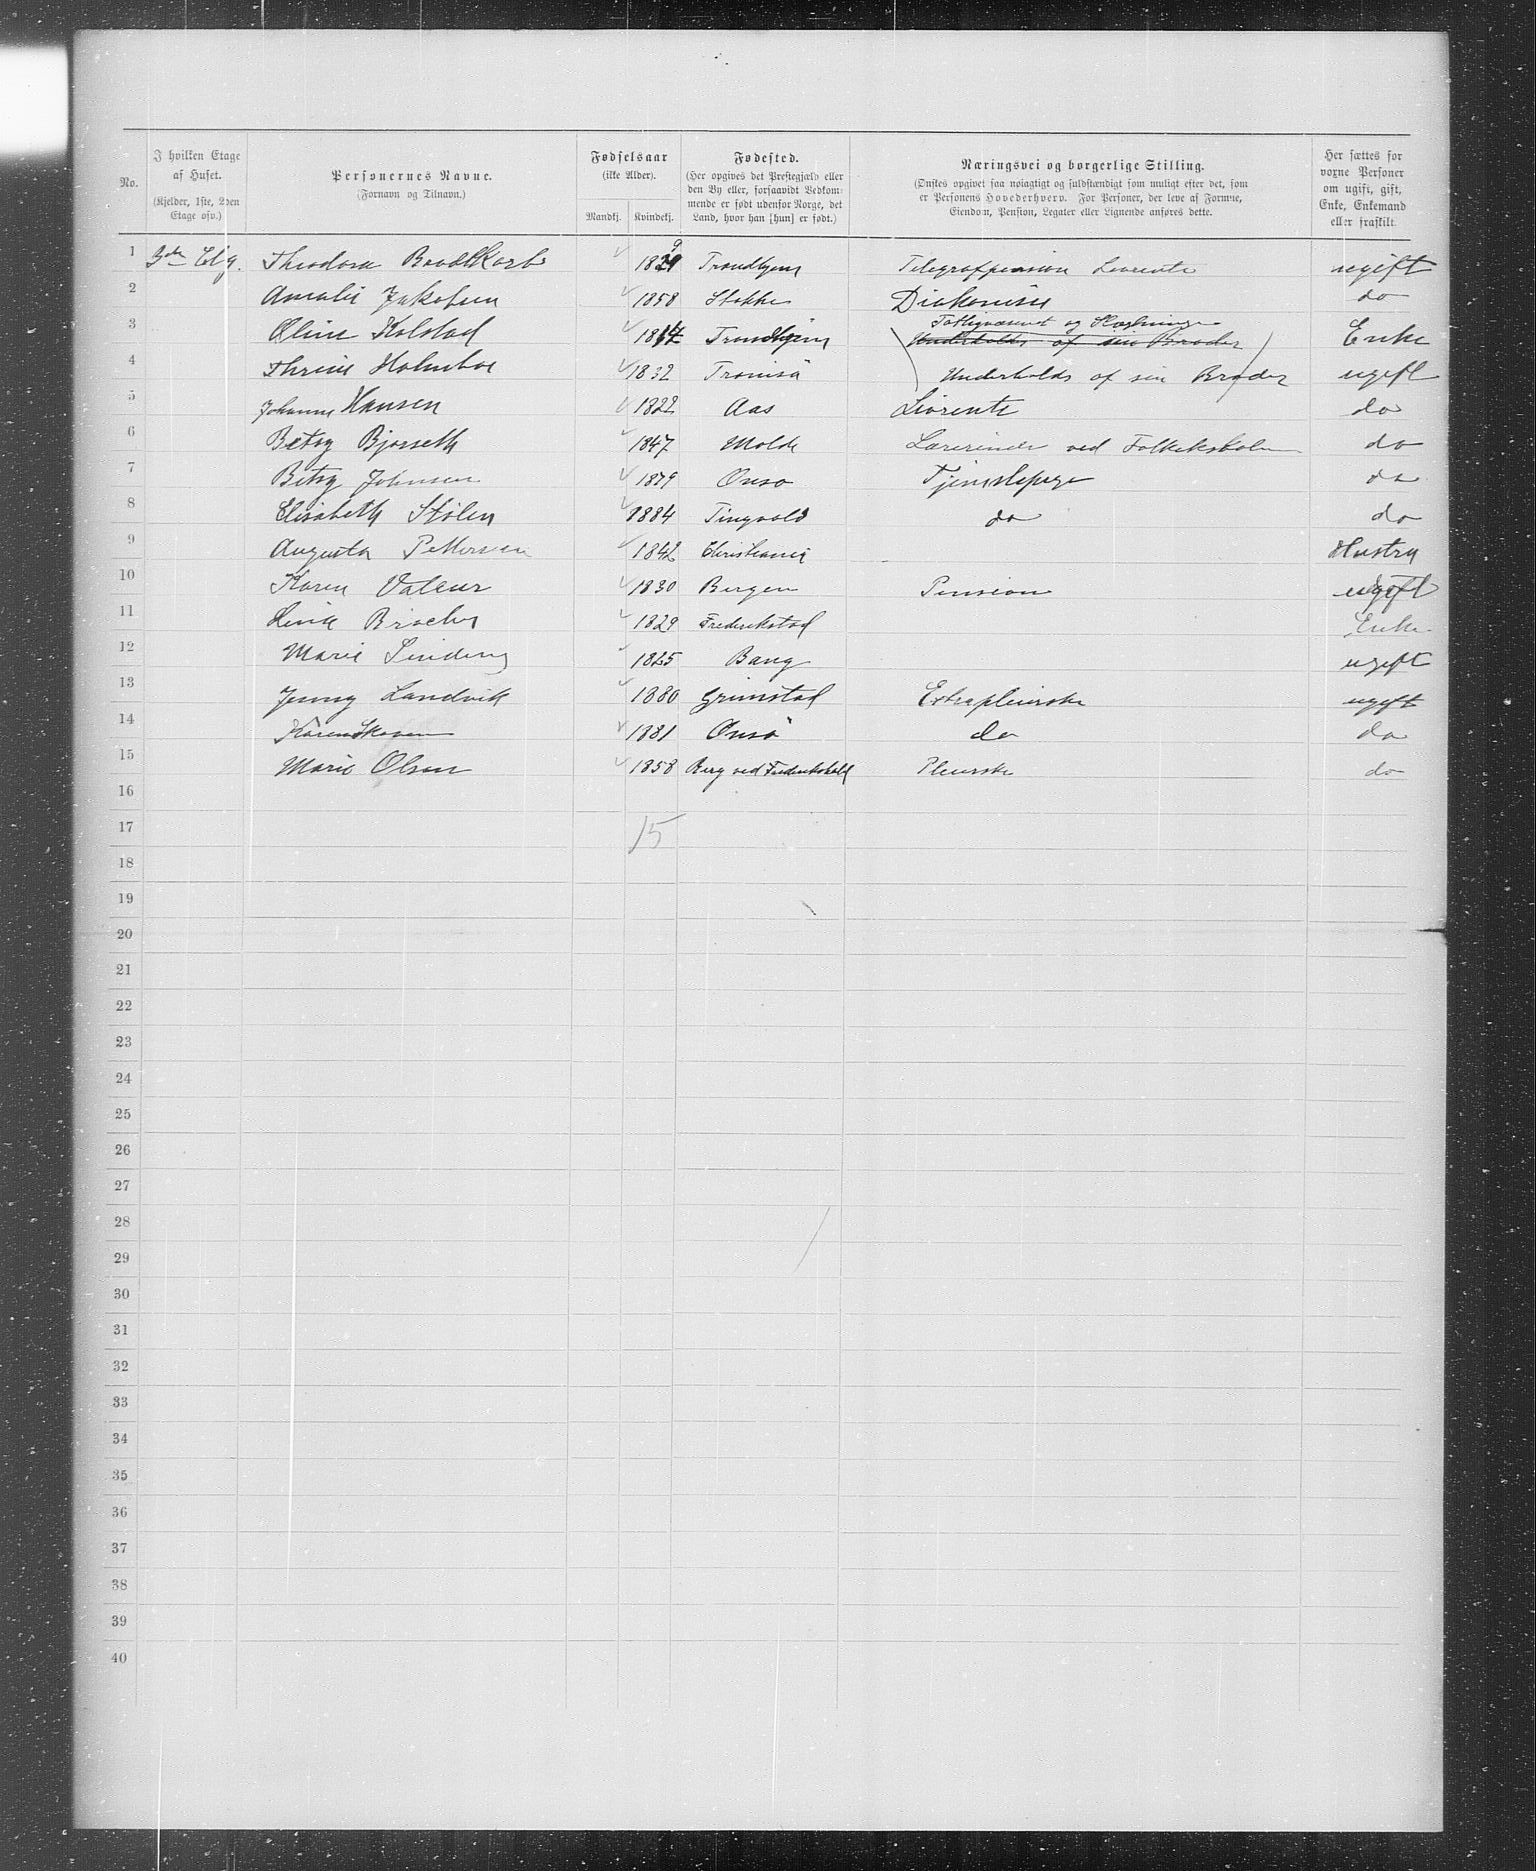 No.
I hvilken Etage af Huset.
(Kjelder, 1ste, 2den Etage osv.)
Personernes Navne.
(Fornavn og Tilnavn.)
Fødselsaar
(ikke Alder).
Mandkj. Kvindekj.
Fødested.
(Her opgives det Prestegjæld eller
den By eller, forsaavidt Vedkom-
mende er født udenfor Norge, det
Land, hvor han [hun] er født.)
Næringsvei og borgerlige Stilling.
(Ønskes opgivet saa nøiagtigt og fuldstændigt som muligt efter det, som
er Personens Hovederhverv. For Personer, der leve af Formue,
Eiendom, Pension, Legater eller Lignende anføres dette.
Her sættes for
voxne Personer
om ugift, gift,
Enke, Enkemand
eller fraskilt.
1 3die Etg. Theodora 1829 Trondhjem Telegrafpension Livrente ugift
2 Amalie Jakobsen 1858 Stokke Diakonisse do
3 Oline Kolstad 18 Trondhjem Fattigvæsenet og Underholdes af sin Broder Enke
4 Thrine Holmboe 1832 Tromsø Underholds af sin Broder ugift
5 Johanne Hansen 1822 Aas Livrente do
6 Betsy Bjørseth 1847 Molde Lærerinde ved Folkeskolen do
7 Betsy Johnsen 1879 Onsø Tjenestepige do
8 Elisabeth Stølen 1884 Tingvold do do
9 Augusta Pettersen 1842 Christiania Hustru
10 Karen Valeur 1830 Bergen Pension ugift
11 1829 Frederikstad Enke
12 Marie 1825 Bang ugift
13 Jenny Landvik 1880 Grimstad Extrapleierske ugift
14 Karen Skoven 1881 Onsø do do
15 Marie Olsen 1858 Berg ved Frederikshald Pleierske do
16
17 15
18
19
20
21
22
23
24
25
26
27
28
29
30
31
32
33
34
35
36
37
38
39
40